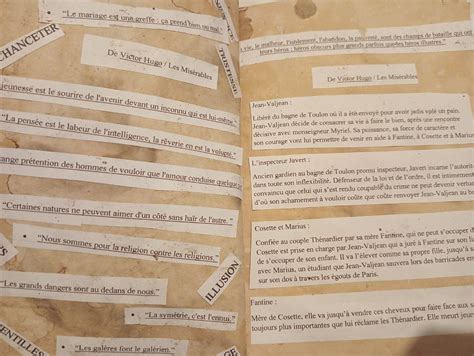 "Le mariage est une greffe : ça prend bien ou mal."
CHANCETER
De Victor Hugo / Les Misérables
TRISTESSE
jeunesse est le sourire de l'avenir devant un inconnu qui est lui-même."
"La pensée est le labeur de l'intelligence, la rêverie en est la volupté."
ange prétention des hommes de vouloir que l'amour conduise quelque
"Certaines natures ne peuvent aimer d'un côté sans haïr de l'autre."
"Nous sommes pour la religion contre les religions."
ILLUSION
"Les grands dangers sont au dedans de nous."
"La symétrie, c'est l'ennui."
"Les galères font le galérien."
ENTILLES
vie, le malheur, l'isolement, l'abandon, la pauvreté, sont des champs de bataille qui ont
leurs héros ; héros obscurs plus grands parfois que les héros illustres."
De Victor Hugo / Les Misérables
Jean-Valjean :
Libéré du bagne de Toulon où il a été envoyé pour avoir jadis volé un pain.
Jean-Valjean décide de consacrer sa vie à faire le bien, après une rencontre
décisive avec monseigneur Myriel. Sa puissance, sa force de caractère et
son courage vont lui permettre de venir en aide à Fantine, à Cosette et à Marius
L'inspecteur Javert :
Ancien gardien au bagne de Toulon promu inspecteur, Javert incarne l'autorité
dans toute son inflexibilité. Défenseur de la loi et de l'ordre, il est intimement
convaincu que celui qui s'est rendu coupable du crime ne peut devenir vertueux
d'où son acharnement à vouloir coûte que coûte retrouver Jean-Valjean
Cosette et Marius :
Confiée au couple Thénardier par sa mère Fantine, qui ne peut s'occuper d
Cosette est prise en charge par Jean-Valjean qui a juré à Fantine sur son lit
de mort de prendre soin d'elle. Il va l'élever comme sa propre fille, jusqu'à s
avec Marius, un étudiant que Jean-Valjean sauvera lors des barricades en
son sur son dos à travers les égouts de Paris.
Fantine :
Mère de Cosette, elle va jusqu'à vendre ces cheveux pour faire face aux
toujours plus importantes que lui réclame les Thénardier. Elle meurt